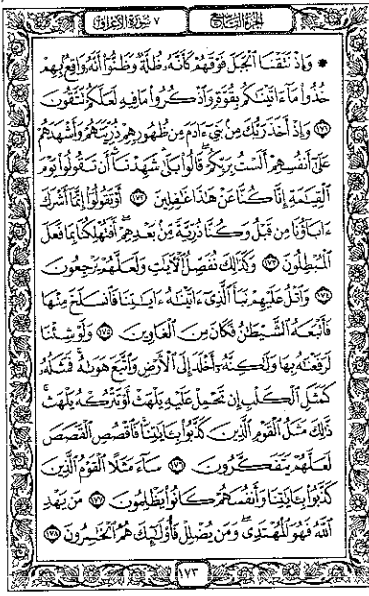 الجزء التاسع ٧ سورة الأعراف
۞ وَإِذْ نَتَقْنَا ٱلْجَبَلَ فَوْقَهُمْ كَأَنَّهُۥ ظُلَّةٌ وَظَنُّوٓا۟ أَنَّهُۥ وَاقِعٌۢ بِهِمْ
خُذُوا۟ مَآ ءَاتَيْنَٰكُم بِقُوَّةٍ وَٱذْكُرُوا۟ مَا فِيهِ لَعَلَّكُمْ تَتَّقُونَ
١٧١ وَإِذْ أَخَذَ رَبُّكَ مِنۢ بَنِىٓ ءَادَمَ مِن ظُهُورِهِمْ ذُرِّيَّتَهُمْ وَأَشْهَدَهُمْ
عَلَىٰٓ أَنفُسِهِمْ أَلَسْتُ بِرَبِّكُمْ ۖ قَالُوا۟ بَلَىٰ ۛ شَهِدْنَآ ۛ أَن تَقُولُوا۟ يَوْمَ
ٱلْقِيَٰمَةِ إِنَّا كُنَّا عَنْ هَٰذَا غَٰفِلِينَ ١٧٢ أَوْ تَقُولُوٓا۟ إِنَّمَآ أَشْرَكَ
ءَابَآؤُنَا مِن قَبْلُ وَكُنَّا ذُرِّيَّةً مِّنۢ بَعْدِهِمْ ۖ أَفَتُهْلِكُنَا بِمَا فَعَلَ
ٱلْمُبْطِلُونَ ١٧٣ وَكَذَٰلِكَ نُفَصِّلُ ٱلْءَايَٰتِ وَلَعَلَّهُمْ يَرْجِعُونَ
١٧٤ وَٱتْلُ عَلَيْهِمْ نَبَأَ ٱلَّذِىٓ ءَاتَيْنَٰهُ ءَايَٰتِنَا فَٱنسَلَخَ مِنْهَا
فَأَتْبَعَهُ ٱلشَّيْطَٰنُ فَكَانَ مِنَ ٱلْغَاوِينَ ١٧٥ وَلَوْ شِئْنَا
لَرَفَعْنَٰهُ بِهَا وَلَٰكِنَّهُۥٓ أَخْلَدَ إِلَى ٱلْأَرْضِ وَٱتَّبَعَ هَوَىٰهُ ۚ فَمَثَلُهُۥ
كَمَثَلِ ٱلْكَلْبِ إِن تَحْمِلْ عَلَيْهِ يَلْهَثْ أَوْ تَتْرُكْهُ يَلْهَث ۚ
ذَّٰلِكَ مَثَلُ ٱلْقَوْمِ ٱلَّذِينَ كَذَّبُوا۟ بِـَٔايَٰتِنَا ۚ فَٱقْصُصِ ٱلْقَصَصَ
لَعَلَّهُمْ يَتَفَكَّرُونَ ١٧٦ سَآءَ مَثَلًا ٱلْقَوْمُ ٱلَّذِينَ
كَذَّبُوا۟ بِـَٔايَٰتِنَا وَأَنفُسَهُمْ كَانُوا۟ يَظْلِمُونَ ١٧٧ مَن يَهْدِ
ٱللَّهُ فَهُوَ ٱلْمُهْتَدِى ۖ وَمَن يُضْلِلْ فَأُو۟لَٰٓئِكَ هُمُ ٱلْخَٰسِرُونَ ١٧٨
١٧٣